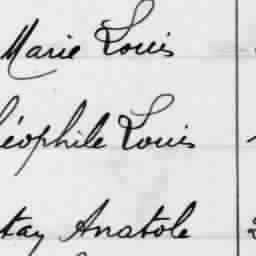 Marie Louis
éophile Louis
tay Anatole